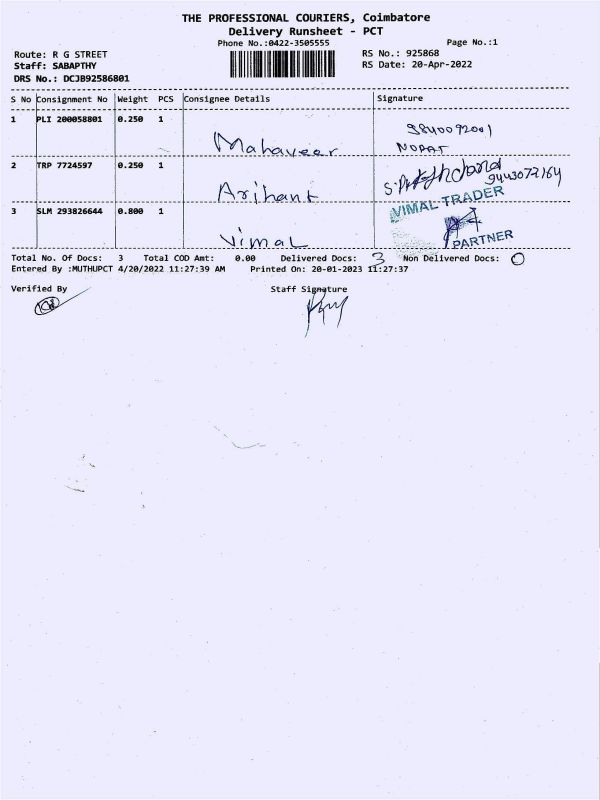 THE PROFESSIONAL COURIERS, Coimbatore
Delivery Runsheet - PCT
Phone No.:0422-3505555
Page No.:1
Route: R G STREET
RS No.: 925868
Staff: SABAPTHY
RS Date: 20-Apr-2022
DRS No.: DCJB92586801
S No Consignment No Weight PCS Consignee Details Signature
1 PLI 200058801 0.250 1 Mahaveer
2 TRP 7724597 0.250 1 Arihant 9443072164
3 SLM 293826644 0.800 1 Vimal
VIMAL TRADER
PARTNER
Total No. Of Docs: 3 Total COD Amt: 0.00 Delivered Docs: 3 Non Delivered Docs: 0
Entered By :MUTHUPCT 4/20/2022 11:27:39 AM Printed On: 20-01-2023 11:27:37
Verified By Staff Signature